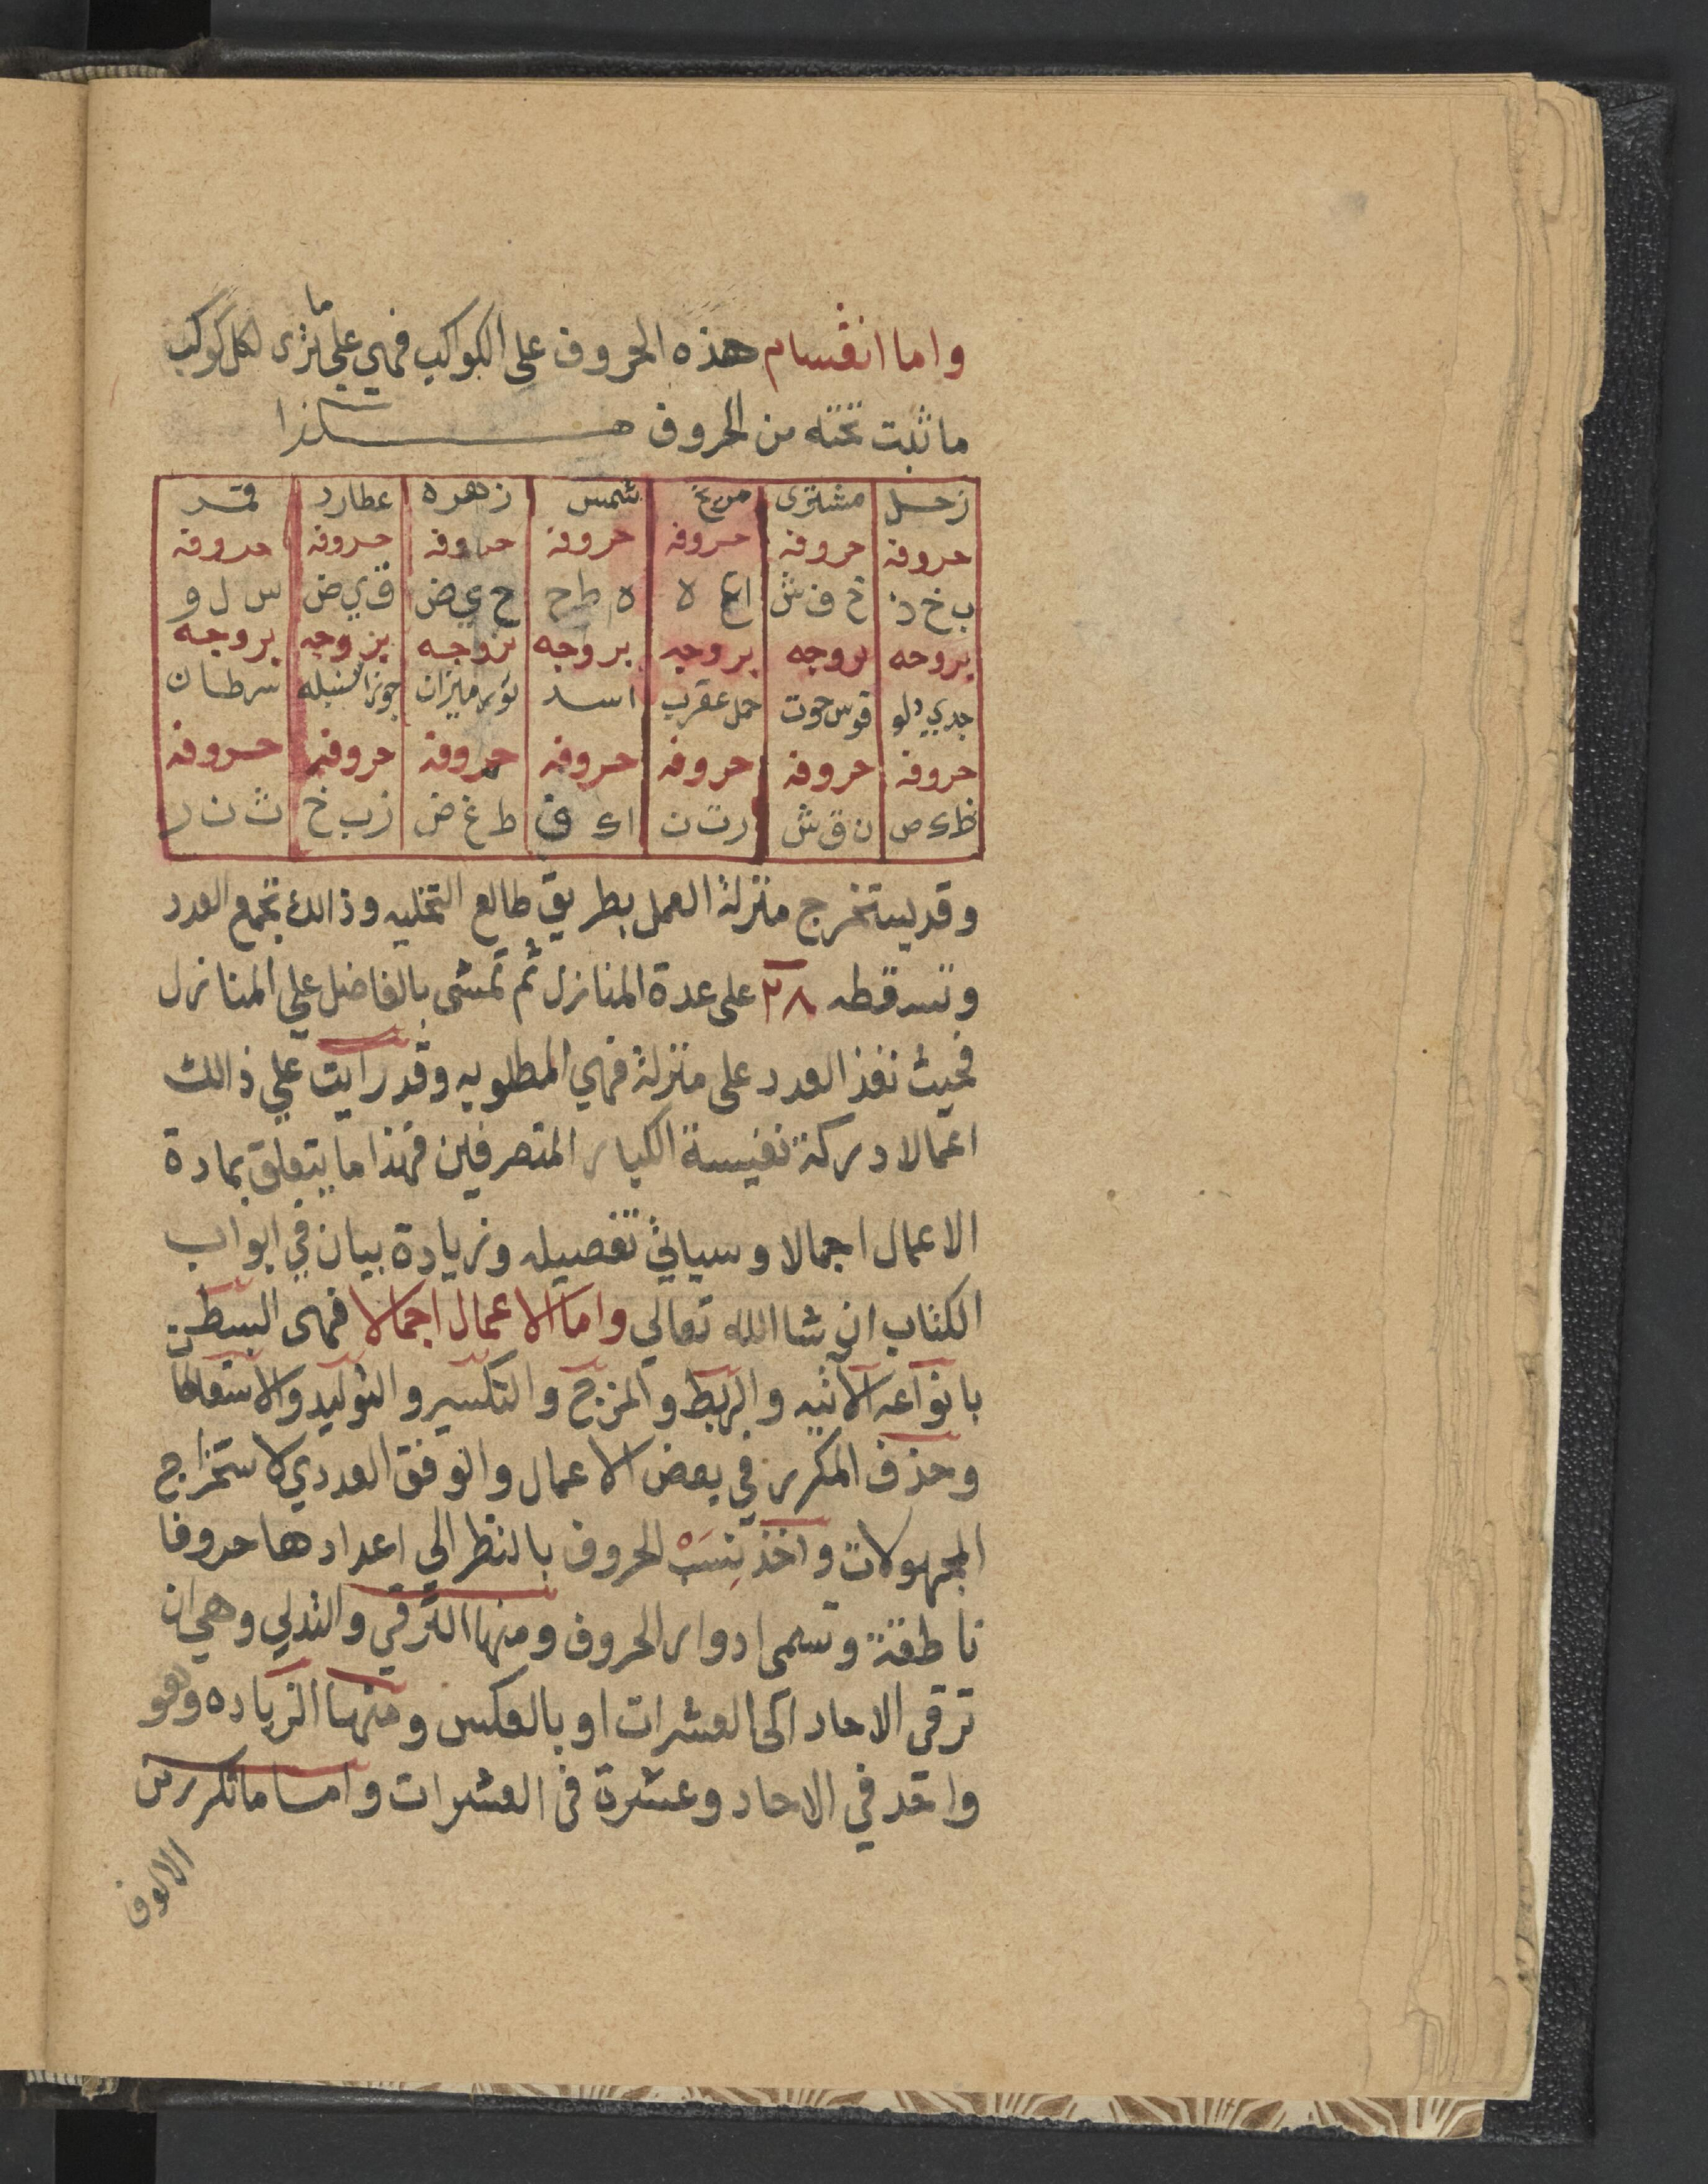 واما انقسام هذه الحروف على الكواكب فهي علي ما ترى لكل كوكب
ما ثبت تحته من الحروف هكذا
زحل مشترى مريخ شمس زهره عطارد قمر
حروفه حروفه حروفه حروفه حروفه حروفه حروفه
ب خ د ح ف ش ا ع ه ه ط ح ح ي ض ق ي ض س ل و
بروجه بروجه بروجه بروجه بروجه بروجه بروجه
جدي دلو قوس حوت حمل عقرب اسد ثور ميزان جوزا سنبله سرطان
حروفه حروفه حروفه حروفه حروفه حروفه حروفه
ظ ك ص ن ق ش ر ت ث ا ك ق ط غ ض ز ب خ ث ن ر
وقد يستخرج منزلة العمل بطريق طالع التخليه وذالك تجمع العدد
وتسقطه ٢٨ على عدة المنازل ثم تمشى بالفاضل علي المنازل
فحيث نفذ العدد على منزلة فهي المطلوبه وقد رايت علي ذالك
اعمالا دركة نفيسة الكبار المتصرفين فهذا ما يتعلق بمادة
الاعمال اجمالا وسياتي تفصيله وزيادة بيان في ابواب
الكتاب ان شا الله تعالي واما الاعمال اجمالا فهى البسط
بانواعه الاتيه والربط والمزج والتكسير والتوليد والاستنطاقات
وحذف المكرر في بعض الاعمال والوفق العددي لاستخراج
المجهولات واخذ نسب الحروف بالنظر الي اعدادها حروفا
ناطقة وتسمى ادوار الحروف ومنها الترقي والتدلي وهي ان
ترقى الاحاد الى العشرات او بالعكس ومنها الزياده وهو
واحد في الاحاد وعشرة فى العشرات واما ما تكرر من
الالوف